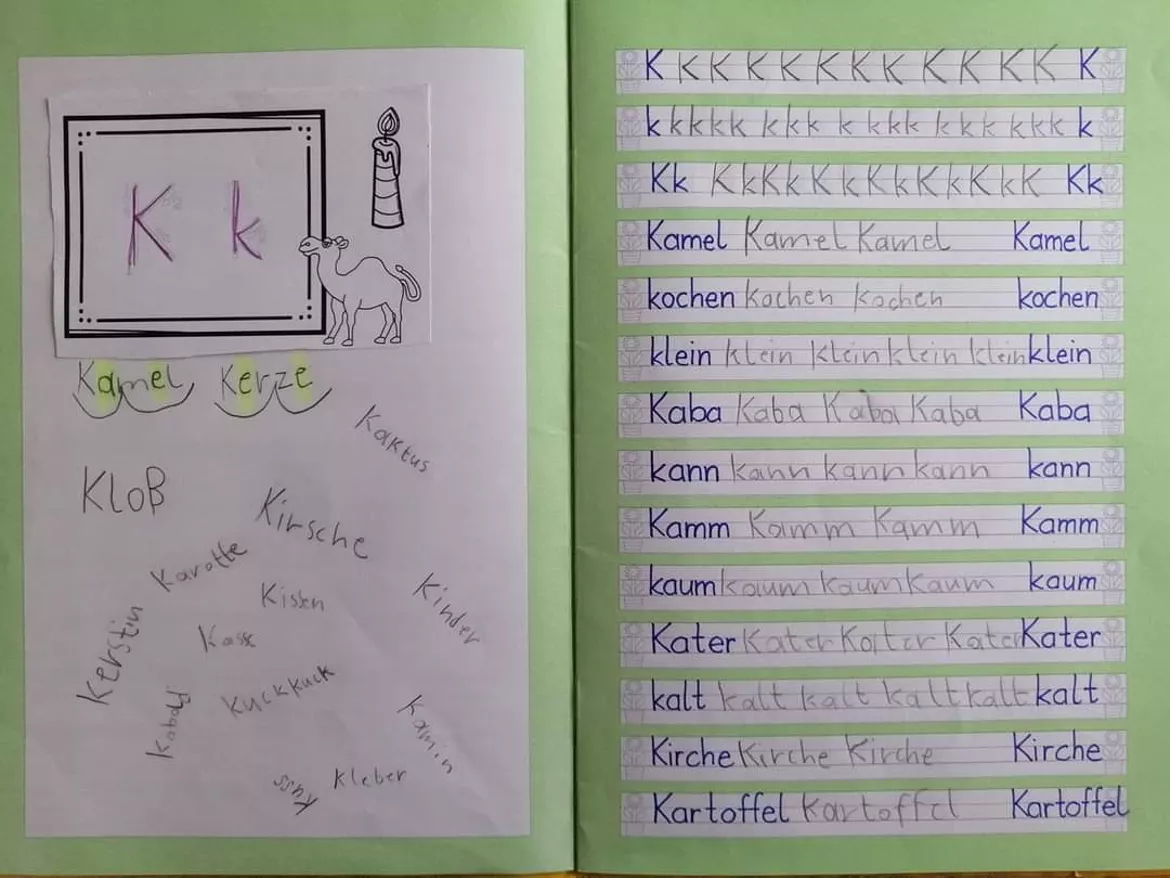 K k
Kamel Kerze
Kaktus
Kloß
Kirsche
Karotte
Kisten
Kinder
Kerstin
Kuckkuck
Kamin
Kleber
Kuss
K K K K K K K K K K K K K
k kkkk kkk k kkk kkk kkk k
Kk KkKkKkKkKkKkK Kk
Kamel Kamel Kamel Kamel
kochen kochen kochen kochen
klein klein klein klein klein klein
Kaba Kaba Kaba Kaba Kaba
kann kann kann kann kann
Kamm Kamm Kamm Kamm
kaum kaum kaum kaum kaum
Kater Kater Kater Kater Kater
kalt kalt kalt kalt kalt kalt
Kirche Kirche Kirche Kirche
Kartoffel Kartoffel Kartoffel